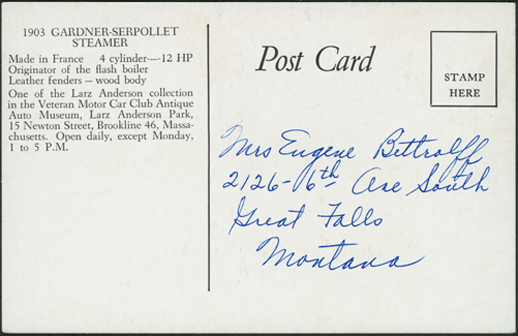 1903 GARDNER-SERPOLLET
STEAMER
Made in France 4 cylinder—12 HP
Originator of the flash boiler
Leather fenders – wood body
One of the Larz Anderson collection
in the Veteran Motor Car Club Antique
Auto Museum, Larz Anderson Park,
15 Newton Street, Brookline 46, Massa-
chusetts. Open daily, except Monday,
1 to 5 P.M.
Post Card
STAMP
HERE
Mrs Eugene Bettrolff
2126-6th Ave South
Great Falls
Montana